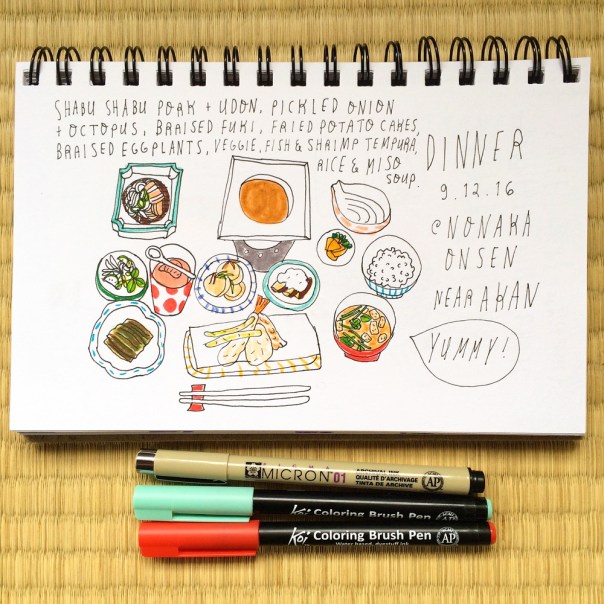 SHABU SHABU PORK + UDON, PICKLED ONION
+ OCTOPUS, BRAISED FUKI, FRIED POTATO CAKES,
BRAISED EGGPLANTS, VEGGIE, FISH & SHRIMP TEMPURA,
RICE & MISO
SOUP.
DINNER
9.12.16
@NONAKA
ONSEN
NEAR AKAN
YUMMY!
MICRON 01
ARCHIVAL INK
QUALITÉ D'ARCHIVAGE
TINTA DE ARCHIVE
AP
Koi Coloring Brush Pen
AP
Koi Coloring Brush Pen
Water based dyestuff ink
AP